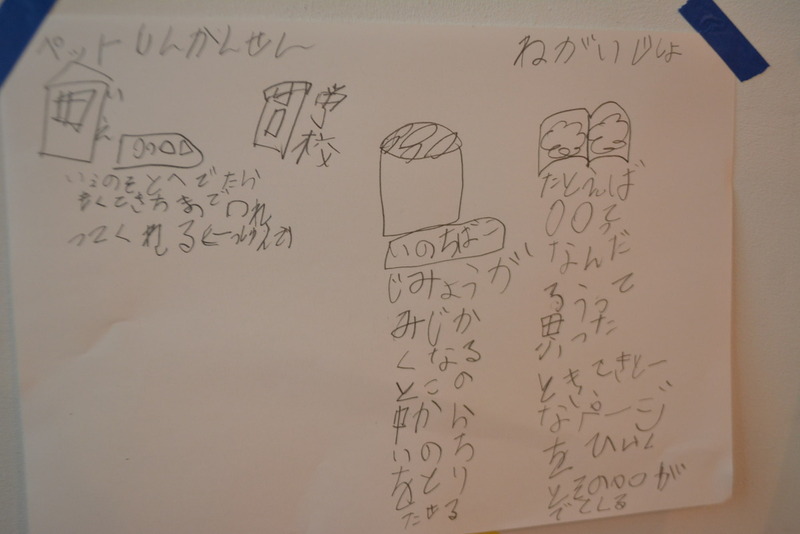 ペットしんかんせん
いえ
学校
いえのそとへでたら
もくてきちまでつれ
ってくれる
いのちばこ
じみょうが
みじか
くなる
とこの
中から
いのち
をとり
だせる
ねがいじしょ
たとえば
〇〇って
なんだ
ろうって
思った
ときてきとー
なページ
をひらく
とその〇〇が
でてくる